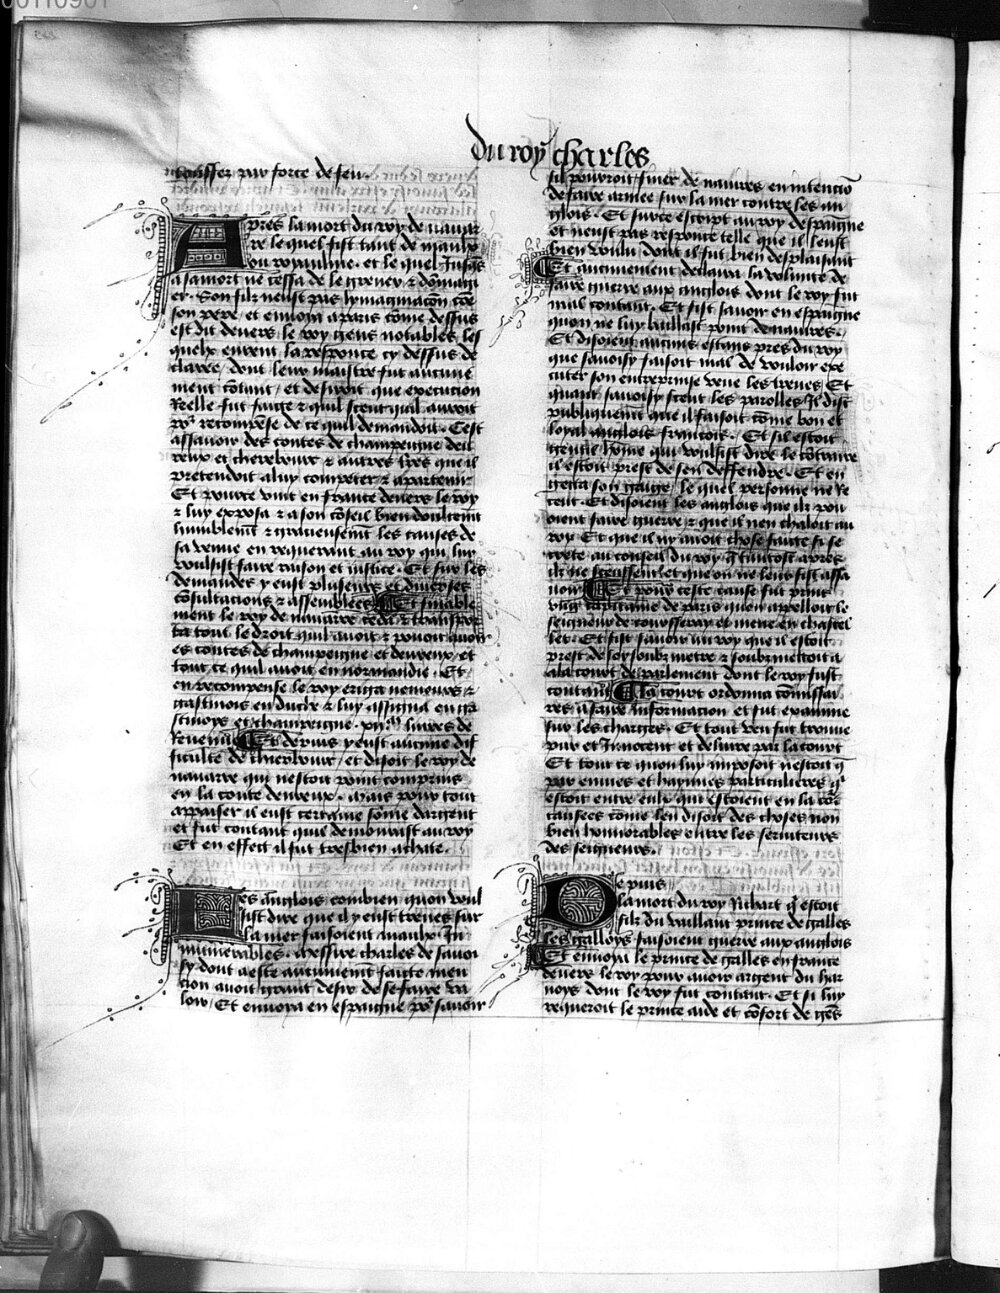 00110901
du roy charles
chasser par force de feu.
Apres la mort du roy de navar
re lequel fist tant de maulx
ou royaulme. et lequel jusqs
a sa mort ne cessa de le grever & dōmagi
er. Son filz neust pas lymaginacōn cōe
son pere et envoya a paris cōme dessus
est dit devers le roy gens notables les
quelx eurent la response cy dessus de
claree, dont leur maistre fut aucune
ment cōtant / et desiroit que execucion
Reelle fut faicte & quil sceut qual auroit
por recompēse de ce quil demandoit. Cest
assavoir des contes de champeigne deu
reux et cherebourc & autres tres que il
pretendoit a luy competer & apartenir
Et pource vint en france devers le roy
& luy exposa & a son cōseil bien doulcemt
humblemt & gracieusemt les causes de
sa venue en requerant au roy qui luy
voulsist faire raison et justice. Et sur les
demandes y eust plusieurs et diverses
cōsultacions & assemblees Et finable
ment le roy de navarre ceda & transpor
ta tout le droit quil avoit & povoit avoir
es contes de champeigne et devreux, et
tout ce quil avoit en normandie. Et
en recompense le roy eriga nemours &
gastinois en duche & luy assigna en ga
stinoys et champeigne. xijm livres de
Revenu Et depuis y eust aucune dif
ficulte de cherbourc, et disoit le roy de
navarre qui nestoit point comprins
en la conte devreux. Mais pour tout
appaiser il eust certaine sōme dargent
et fut contant quil demourast au roy
Et en effect il fut tresbien achate.
Les anglois combien quon voul
sist dire que il y eust treves sur
la mer faisoient maulx In
numerables. Messire charles de savoi
sy dont a este aucunemēt faicte men
cion avoit grant desir de se faire va
loir, Et envoya en espaigne por savoir
sil pourroit finer de navires en intencio
de faire armee sur la mer contre les an
glois. Et sur ce escript au roy despaigne
et neust pas response telle que il leust
bien voulu dont il fut bien desplaisant
Et aucunement declaira la volunte de
faire guerre aux anglois dont le roy fut
mal contant. Et fist savoir en espaigne
quon ne luy baillast point de navires.
Et disoient aucuns estans pres du roy
que savoisy faisoit mal de vouloir exe
cuter son entreprinse veue les treves. Et
quant savoisy sceut les parolles Il dist
publiquemt que il faisoit cōme bon et
loyal anglois francois. Et sil estoit
gentil hōme qui voulsist dire le cōtraire
il estoit prest de sen deffendre. Et en
getta son gaige, lequel personne ne Re
ceut. Et disoient les anglois que ilz pou
oient faire guerre & que il nen chaloit au
roy Et que il ny avoit chose faicte si se
crete au conseil du roy q tantost apres
ilz ne sceussent et que on ne leur fist assa
voir Et pour ceste cause fut print
ung capitaine de paris quon appelloit le
seigneur de et mene en chastel
let. Et fist savoir au roy que il estoit
prest de soy soubzmetre & soubzmettoit a
a la court de parlement dont le roy fust
contant La court ordonna cōmissai
res a faire informacion et fut examine
sur les charges. Et tout veu fut trouve
pur et Innocent et delivre par la court
Et tout ce quon luy imposoit nestoit q
par envies et haynnes particulieres q
estoit entre eulx qui estoient en la cōe
causees cōme len disoit des choses non
bien honnorables entre les serviteurs
des seigneurs.
Depuis
la mort du roy Richart q estoit
filz du vaillant prince de galles
les galloys faisoient guerre aux anglois
Et envoya le prince de galles en france
devers le roy pour avoir argent du har
noys dont le roy fut contant. Et si luy
requeroit le prince aide et cōfort de gēs